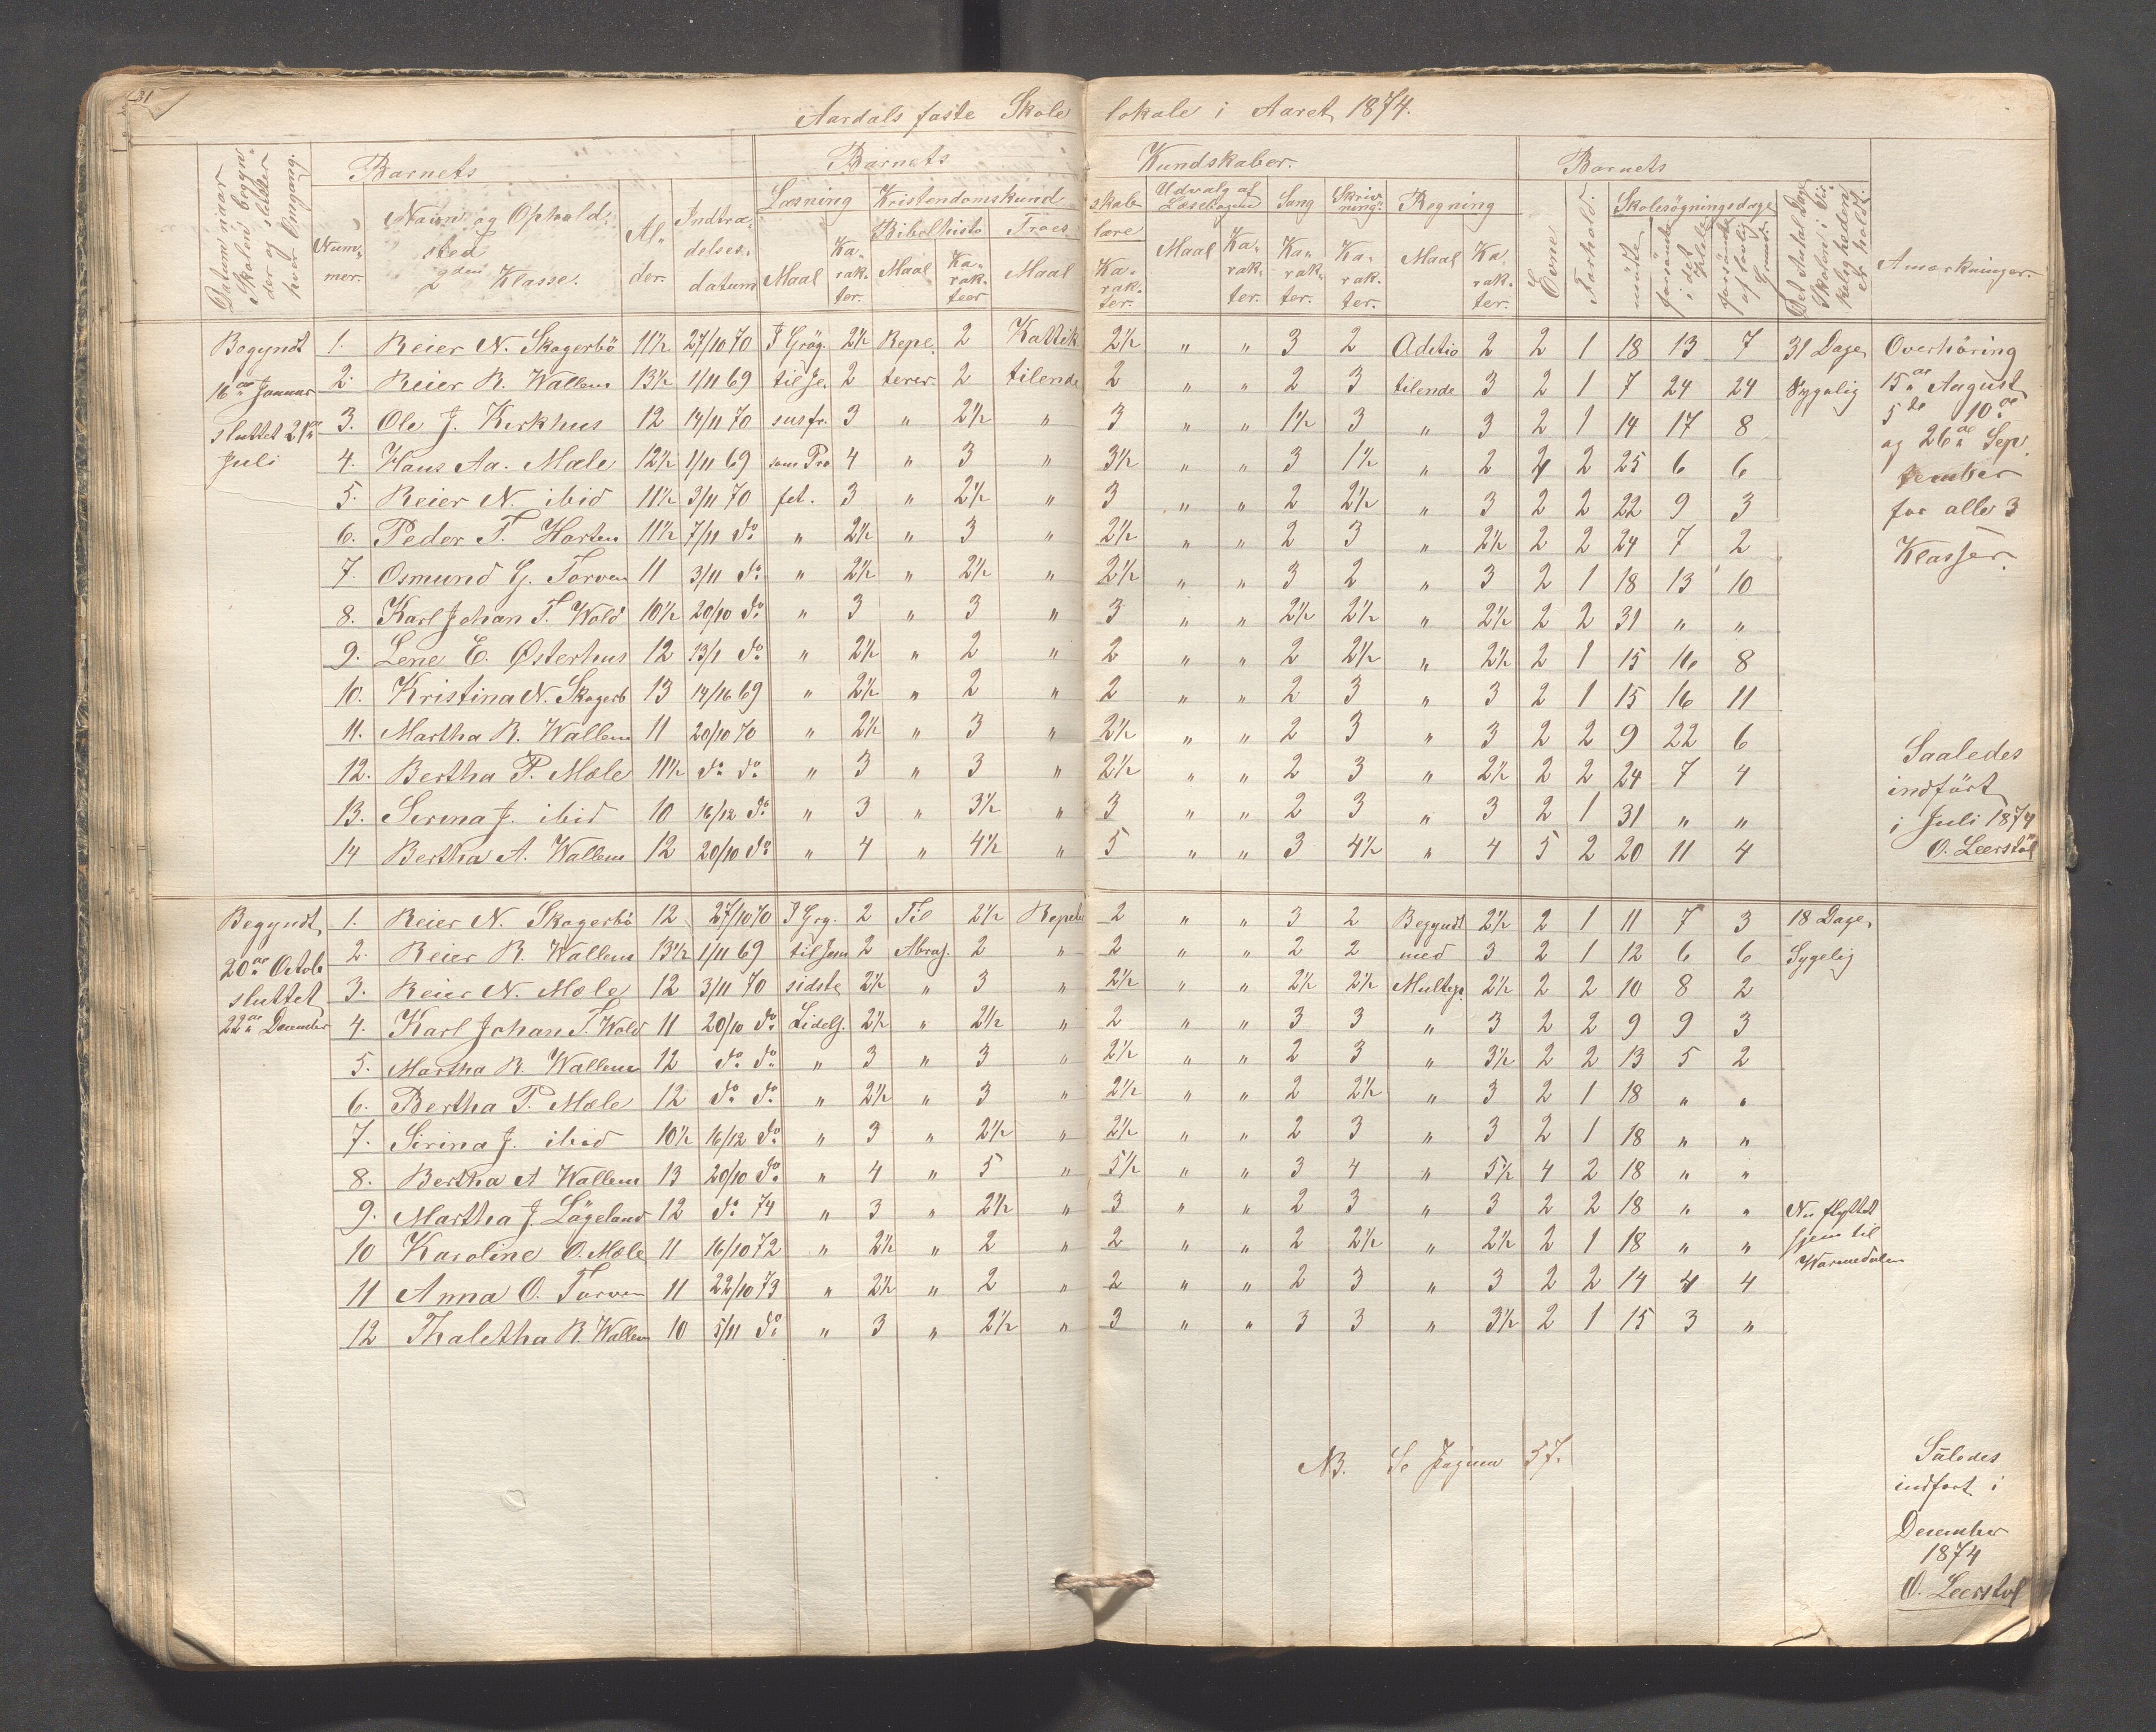 31
Aardals faste Skole lokale i Aaret 1874.
Datum naar Skolen begyn- der og slutter hver Omgang.
Barnets
Num- mer.
Navn og Ophold sted
2den Klasse.
Al- der.
Indtræ- delses- datum
Barnets Kundskaber.
Læsning
Maal
Ka- rak- ter.
Kristendomskund skabe
Bibelhisto
Maal
Ka- rak- teer
Troes lære
Maal
Ka- rak- ter.
Udvalg af Læsebogen
Maal
Ka- rak- ter.
Sang
Ka- rak- ter.
Skriv- ning.
Ka- rak- ter.
Regning
Maal
Ka- rak- ter.
Barnets
Evne
Forhold.
Skolesögningsdage
mödte
forsömte i det Hele
forsömte af lovlig Grund.
Det Antal Dage Skolen i Vir- keligheden er holdt.
Anmerkninger.
Begyndt 1. Reier N. Skogerbö 11½ 27/10 70 I Grög. 2½ Repe. 2 Kattik 2½ " " 3 2 Aditio 2 2 1 18 13 7 31 Dage Overhöring
16de Januar 2. Reier R. Wallem 13½ 1/11 69 til Je. 2 terer. 2 tilende 2 " " 2 3 tilende 3 2 1 7 24 24 Sygelig 15de August
sluttet 21de 3. Ole J. Kirkhus 12 14/11 70 sus fr. 3 " 2½ " 3 " " 1½ 3 " 3 2 1 14 17 8 5te 10de
Juli 4. Hans Aa. Mæle 12½ 1/11 69 som Pro 4 " 3 " 3½ " " 3 1½ " 2 2 2 25 6 6 og 26de Sep.
5. Reier N. ibid 11½ 3/11 70 fet. 3 " 2½ " 3 " " 2 2½ " 3 2 2 22 9 3 tember
6. Peder T. Horten 11½ 7/11 do " 2½ " 3 " 2½ " " 2 3 " 2½ 2 2 24 7 2 for alle 3
7. Osmund G. Torven 11 3/11 do " 2½ " 2½ " 2½ " " 3 2 " 3 2 1 18 13 10 Klasser.
8. Karl Johan T. Wold 10½ 20/10 do " 3 " 3 " 3 " " 2½ 2½ " 2½ 2 2 31 " "
9. Lene E. Østerhus 12 13/1 do " 2½ " 2 " 2 " " 2 2½ " 2½ 2 1 15 16 8
10. Kristina N. Skogerb 13 14/10 69 " 2½ " 2 " 2 " " 2 3 " 3 2 1 15 16 11
11. Martha R. Wallem 11 20/10 70 " 2½ " 3 " 2½ " " 2 3 " 3 2 2 9 22 6
12. Bertha P. Mæle 11½ do do " 3 " 3 " 2½ " " 2 3 " 2½ 2 2 24 7 4
13. Serina J. ibid 10 16/12 do " 3 " 3½ " 3 " " 2 3 " 3 2 1 31 " "
14 Bertha A. Wallem 12 20/10 do " 4 " 4½ " 5 " " 3 4½ " 4 5 2 20 11 4
Saaledes
indfört
i Juli 1874
O. Leerstöl
Begyndt 1. Reier N. Skogerbö 12 27/10 70 I Grg. 2 Til 2½ Repete 2 " " 3 2 Begyndt 2½ 2 1 11 7 3 18 Dage
20de Octob 2. Reier R. Wallem 13½ 1/11 69 til Jem 2 Abraj. 2 " 2 " " 2 2 med 3 2 1 12 6 6 Sygelig
sluttet 3. Reier N. Mæle 12 3/11 70 sidste 2½ " 3 " 2½ " " 2½ 2½ Multip. 2½ 2 2 10 8 2
22de December 4. Karl Johan T. Wold 11 20/10 do Lidels. 2½ " 2½ " 2 " " 3 3 " 3 2 2 9 9 3
5. Martha R. Wallem 12 do do " 3 " 3 " 2½ " " 2 3 " 3½ 2 2 13 5 2
6. Bertha P. Mæle 12 do do " 2½ " 3 " 2½ " " 2 2½ " 3 2 1 18 " "
7. Sirina J. ibid 10½ 16/12 do " 3 " 2½ " 2½ " " 2 3 " 3 2 1 18 " "
8. Bertha A Wallem 13 20/10 do " 4 " 5 " 5½ " " 3 4 " 5½ 4 2 18 " "
9. Martha J. Lögeland 12 do 74 " 3 " 2½ " 3 " " 2 3 " 3 2 2 18 " " Nu flyttet
10 Karoline O. Mæle 11 16/10 72 " 2½ " 2 " 2 " " 2 2½ " 2½ 2 1 18 " " hjem til
11 Anna O. Torven 11 22/10 73 " 2½ " 2 " 2 " " 2 3 " 3 2 2 14 4 4 Warmedalen
12 Thaletha R. Wallem 10 5/11 do " 3 " 2½ " 3 " " 3 3 " 3½ 2 1 15 3 "
NB. Se Pagina 57.
Således
indfört i
December
1874
O. Leerstöl